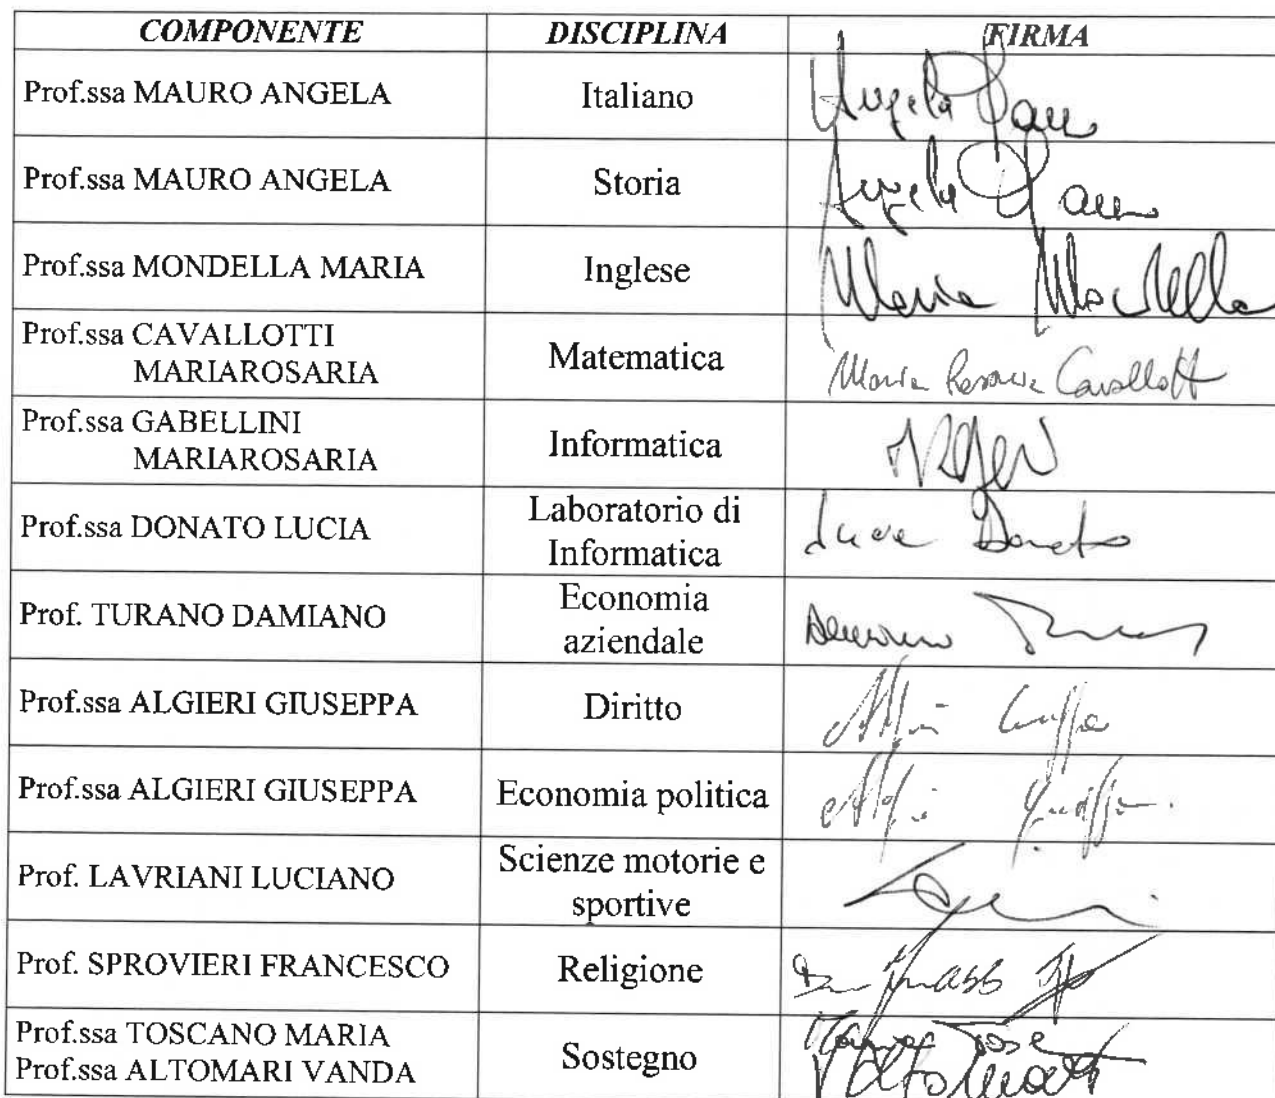 COMPONENTE DISCIPLINA FIRMA
Prof.ssa MAURO ANGELA Italiano Angela Mauro
Prof.ssa MAURO ANGELA Storia Angela Mauro
Prof.ssa MONDELLA MARIA Inglese Maria Mondella
Prof.ssa CAVALLOTTI
MARIAROSARIA Matematica Maria Rosaria Cavallotti
Prof.ssa GABELLINI
MARIAROSARIA Informatica
Prof.ssa DONATO LUCIA Laboratorio di
Informatica Lucia Donato
Prof. TURANO DAMIANO Economia
aziendale Damiano
Prof.ssa ALGIERI GIUSEPPA Diritto
Prof.ssa ALGIERI GIUSEPPA Economia politica
Prof. LAVRIANI LUCIANO Scienze motorie e
sportive
Prof. SPROVIERI FRANCESCO Religione
Prof.ssa TOSCANO MARIA
Prof.ssa ALTOMARI VANDA Sostegno